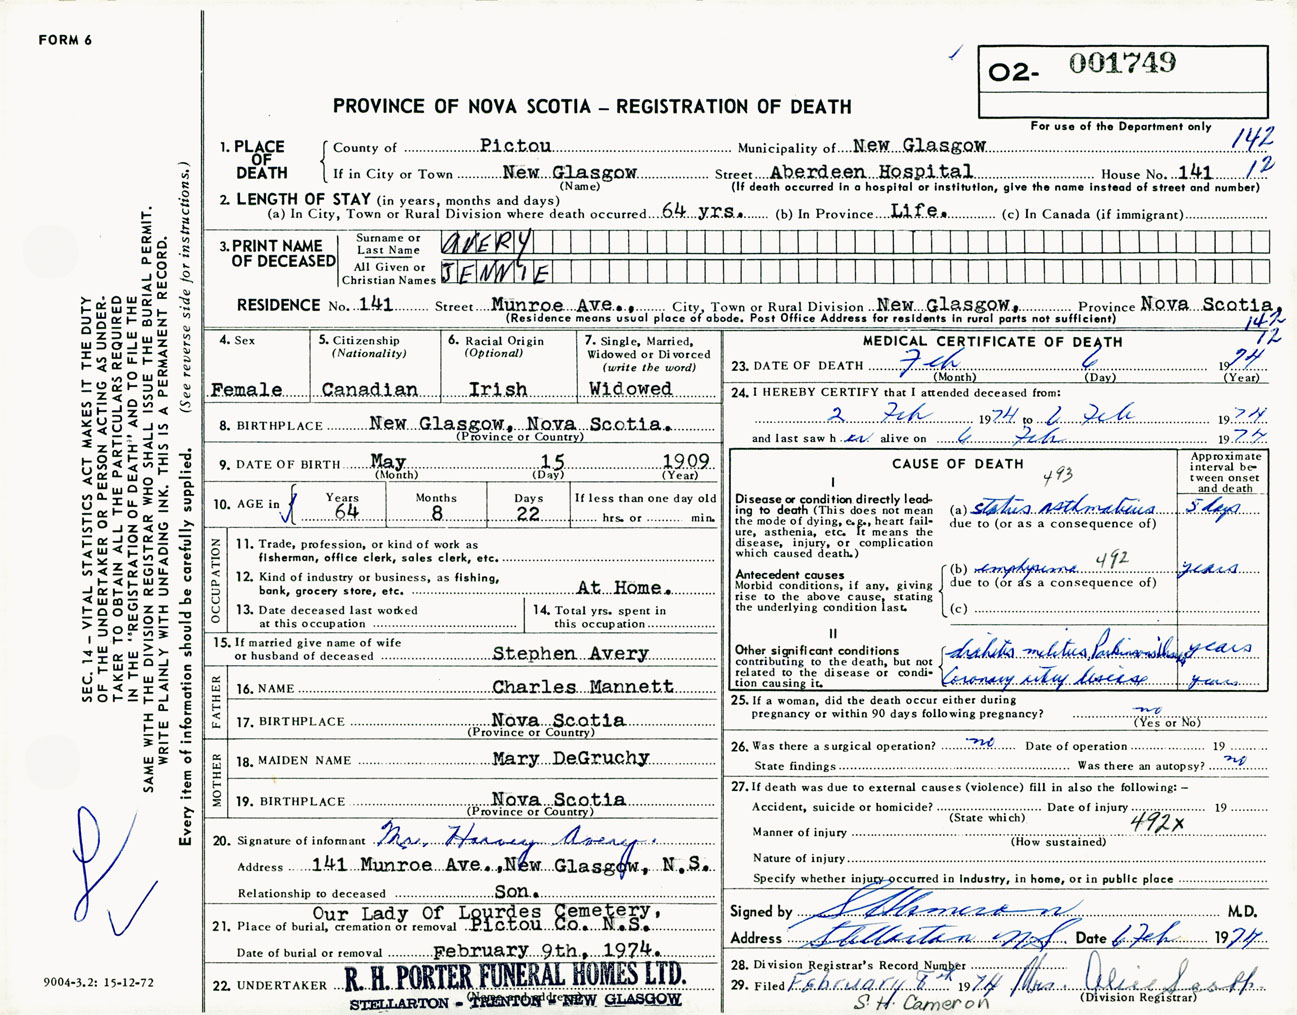 FORM 6
O2- 001749
PROVINCE OF NOVA SCOTIA – REGISTRATION OF DEATH
For use of the Department only
142
12
1. PLACE OF DEATH
County of Pictou Municipality of New Glasgow
If in City or Town New Glasgow Street Aberdeen Hospital House No. 141
(Name) (If death occurred in a hospital or institution, give the name instead of street and number)
2. LENGTH OF STAY (in years, months and days)
(a) In City, Town or Rural Division where death occurred 64 yrs. (b) In Province Life. (c) In Canada (if immigrant)
3. PRINT NAME OF DECEASED
Surname or Last Name AVERY
All Given or Christian Names JENNIE
RESIDENCE No. 141 Street Munroe Ave., City, Town or Rural Division New Glasgow, Province Nova Scotia,
(Residence means usual place of abode. Post Office Address for residents in rural parts not sufficient)
142
12
SEC. 14 – VITAL STATISTICS ACT MAKES IT THE DUTY
OF THE UNDERTAKER OR PERSON ACTING AS UNDER-
TAKER TO OBTAIN ALL THE PARTICULARS REQUIRED
IN THE "REGISTRATION OF DEATH" AND TO FILE THE
SAME WITH THE DIVISION REGISTRAR WHO SHALL ISSUE THE BURIAL PERMIT.
WRITE PLAINLY WITH UNFADING INK. THIS IS A PERMANENT RECORD.
Every item of information should be carefully supplied. (See reverse side for instructions.)
4. Sex
Female
5. Citizenship
(Nationality)
Canadian
6. Racial Origin
(Optional)
Irish
7. Single, Married,
Widowed or Divorced
(write the word)
Widowed
8. BIRTHPLACE New Glasgow, Nova Scotia.
(Province or Country)
9. DATE OF BIRTH May 15 1909
(Month) (Day) (Year)
10. AGE in
Years Months Days If less than one day old
64 8 22 hrs. or min.
OCCUPATION
11. Trade, profession, or kind of work as
fisherman, office clerk, sales clerk, etc.
12. Kind of industry or business, as fishing,
bank, grocery store, etc. At Home.
13. Date deceased last worked
at this occupation
14. Total yrs. spent in
this occupation
15. If married give name of wife
or husband of deceased Stephen Avery
FATHER
16. NAME Charles Mannett
17. BIRTHPLACE Nova Scotia
(Province or Country)
MOTHER
18. MAIDEN NAME Mary DeGruchy
19. BIRTHPLACE Nova Scotia
(Province or Country)
20. Signature of informant Mrs. Harvey Avery.
Address 141 Munroe Ave., New Glasgow, N.S.
Relationship to deceased Son.
Our Lady Of Lourdes Cemetery,
21. Place of burial, cremation or removal Pictou Co. N.S.
Date of burial or removal February 9th, 1974.
22. UNDERTAKER R. H. PORTER FUNERAL HOMES LTD.
STELLARTON - TRENTON - NEW GLASGOW
9004-3.2: 15-12-72
MEDICAL CERTIFICATE OF DEATH
23. DATE OF DEATH Feb 6 1974
(Month) (Day) (Year)
24. I HEREBY CERTIFY that I attended deceased from:
2 Feb 1974 to 6 Feb 1974
and last saw her alive on 6 Feb 1974
CAUSE OF DEATH
493
Approximate
interval be-
tween onset
and death
I
Disease or condition directly lead-
ing to death (This does not mean
the mode of dying, e.g., heart fail-
ure, asthenia, etc. It means the
disease, injury, or complication
which caused death.)
(a) status asthmaticus 5 days
due to (or as a consequence of)
492
Antecedent causes
Morbid conditions, if any, giving
rise to the above cause, stating
the underlying condition last.
(b) emphysema years
due to (or as a consequence of)
(c)
II
Other significant conditions
contributing to the death, but not
related to the disease or condi-
tion causing it.
diabetes melitus, years
Coronary artery disease years
25. If a woman, did the death occur either during
pregnancy or within 90 days following pregnancy? no
(Yes or No)
26. Was there a surgical operation? no Date of operation 19
State findings Was there an autopsy? no
27. If death was due to external causes (violence) fill in also the following: –
Accident, suicide or homicide? Date of injury 19
(State which)
492x
Manner of injury
(How sustained)
Nature of injury
Specify whether injury occurred in Industry, in home, or in public place
Signed by S H Cameron M.D.
Address Stellarton NS Date 6 Feb 1974
28. Division Registrar's Record Number
29. Filed February 8th 1974 Mrs. Alice Scott
(Division Registrar)
S. H. Cameron